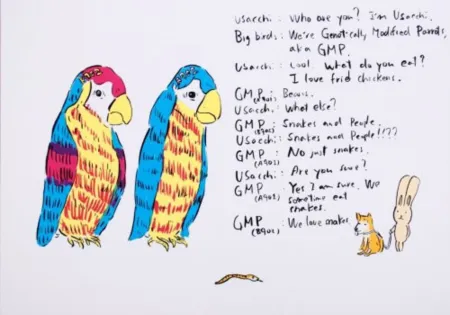 usacchi : Who are you? I'm Usacchi.
Big birds : We're Genetically Modified Parrots,
aka GMP.
usacchi : Cool. What do you eat?
I love fried chickens.
GMP : Beans.
Usacchi : What else?
GMP : Snakes and People.
(B901)
Usacchi : Snakes and People!!??
GMP : No just snakes.
(A901)
Usacchi : Are you sure?
GMP : Yes I am sure. We
(A901) sometime eat
snakes.
GMP : We love snakes.
(B901)